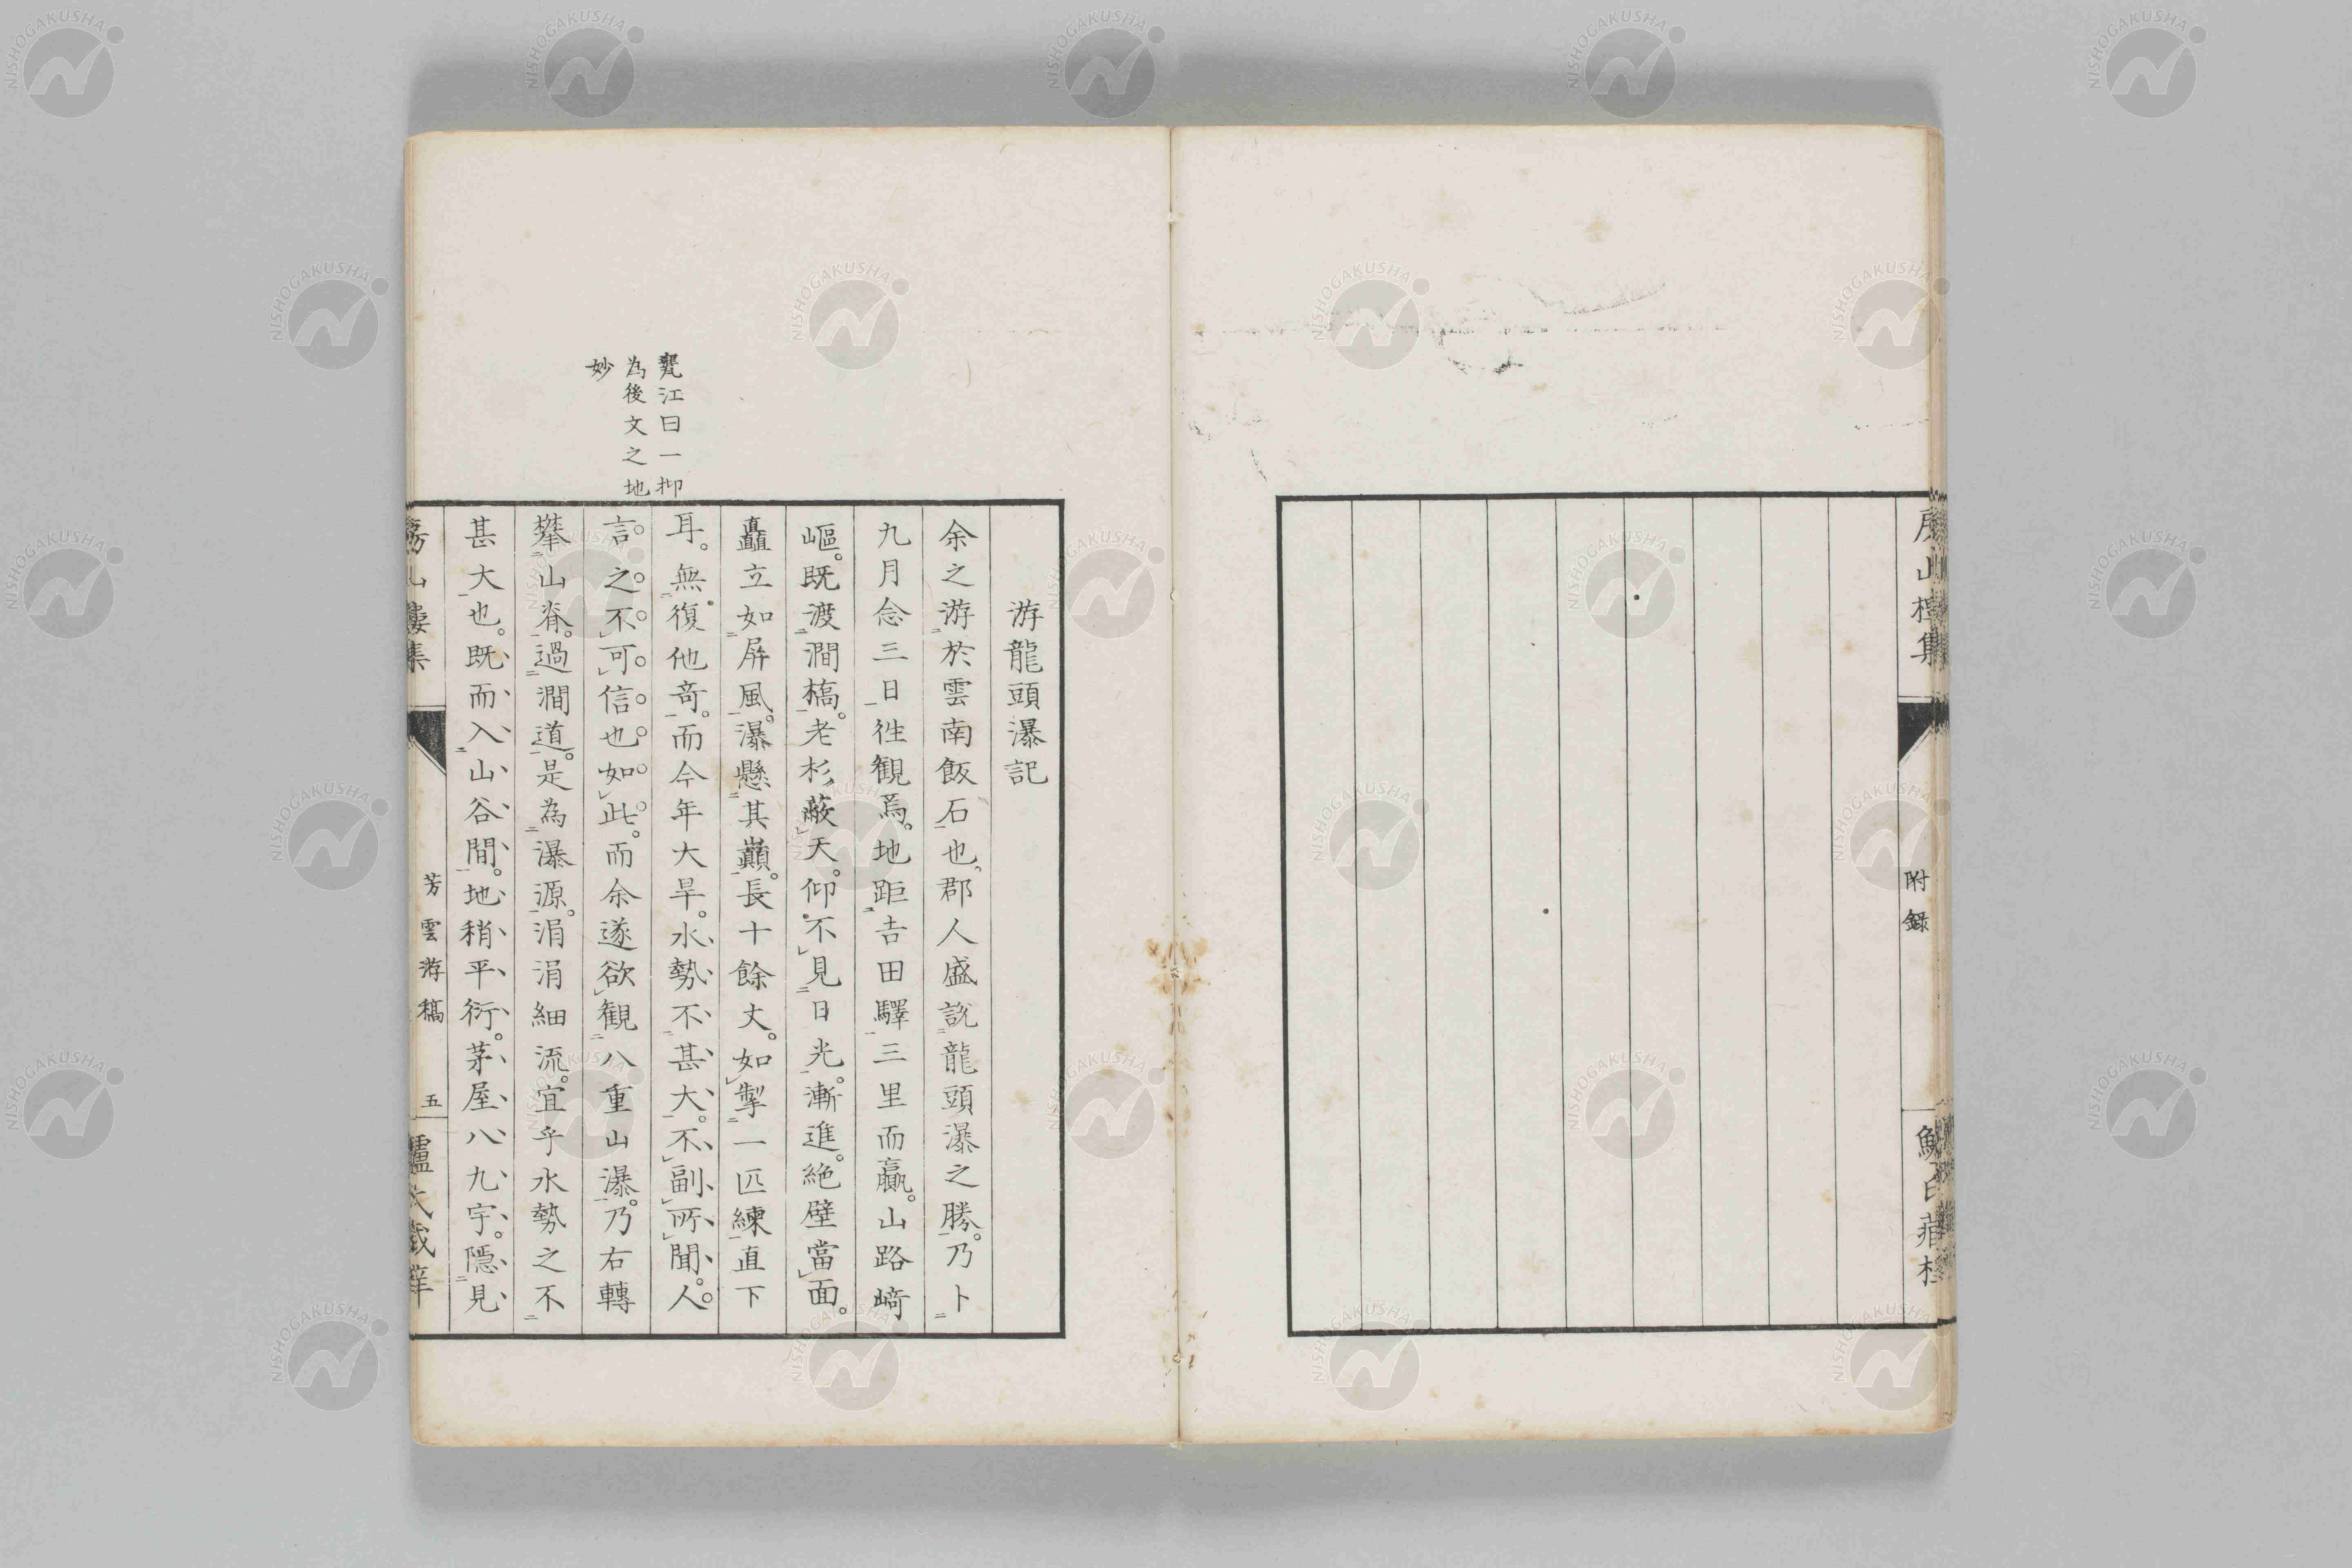 附錄
游龍頭瀑記
余之游於雲南飯石也、郡人盛說龍頭瀑之勝。乃卜
九月念三日徃観焉。地距吉田驛三里而贏。山路﨑
嶇。既渡澗槗。老杉蔽天。仰不見日光。漸進。絶壁當面。
矗立如屏風。瀑懸其巓。長十餘丈。如掣一匹練直下
耳。無復他竒。而今年大旱。水勢不甚大。不副所聞。人。
言。之。不。可。信。也。如。此。而余遂欲観八重山瀑。乃右轉
攀山脊。過澗道。是為瀑源。涓涓細流。宜乎水勢之不
甚大也。既而入山谷間。地稍平衍。茅屋八九宇。隱見
甕江曰一抑
為後文之地
妙
芳雲游稿
五
NISHOGAKUSHA